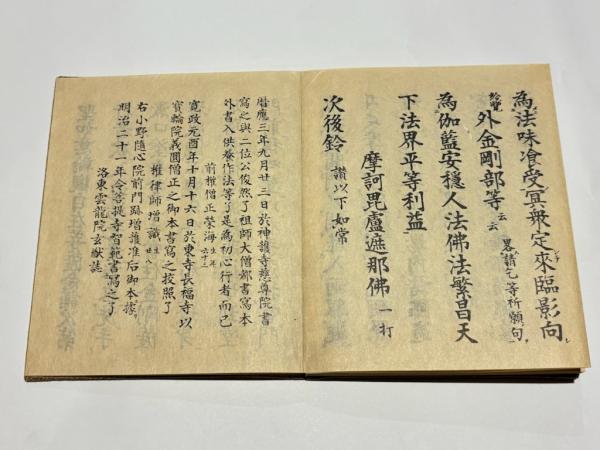 為法味飡受冥衆定來臨影向
外金剛部等云云 畧諸乞等祈願句
為伽藍安穏人法佛法繁昌天
下法界平等利益
摩訶毘盧遮那佛 一打
次後鈴 讃以下如常
暦應三年九月廿三日於神護寺慈尊院書
寫之與二位公俊然了祖師大僧都書寫本
外書入供養作法等了是為初心行者而已
前權僧正榮海 生年六十三
寛政元酉年十月十六日於東寺長福寺以
寳輪院義圓僧正之御本書寫之挍照了
權律師増識 生年廿八
右小野隨心院前門跡増護准后御本
明治二十一年令菩提寺智範書寫之了
洛東雲龍院玄猷誌